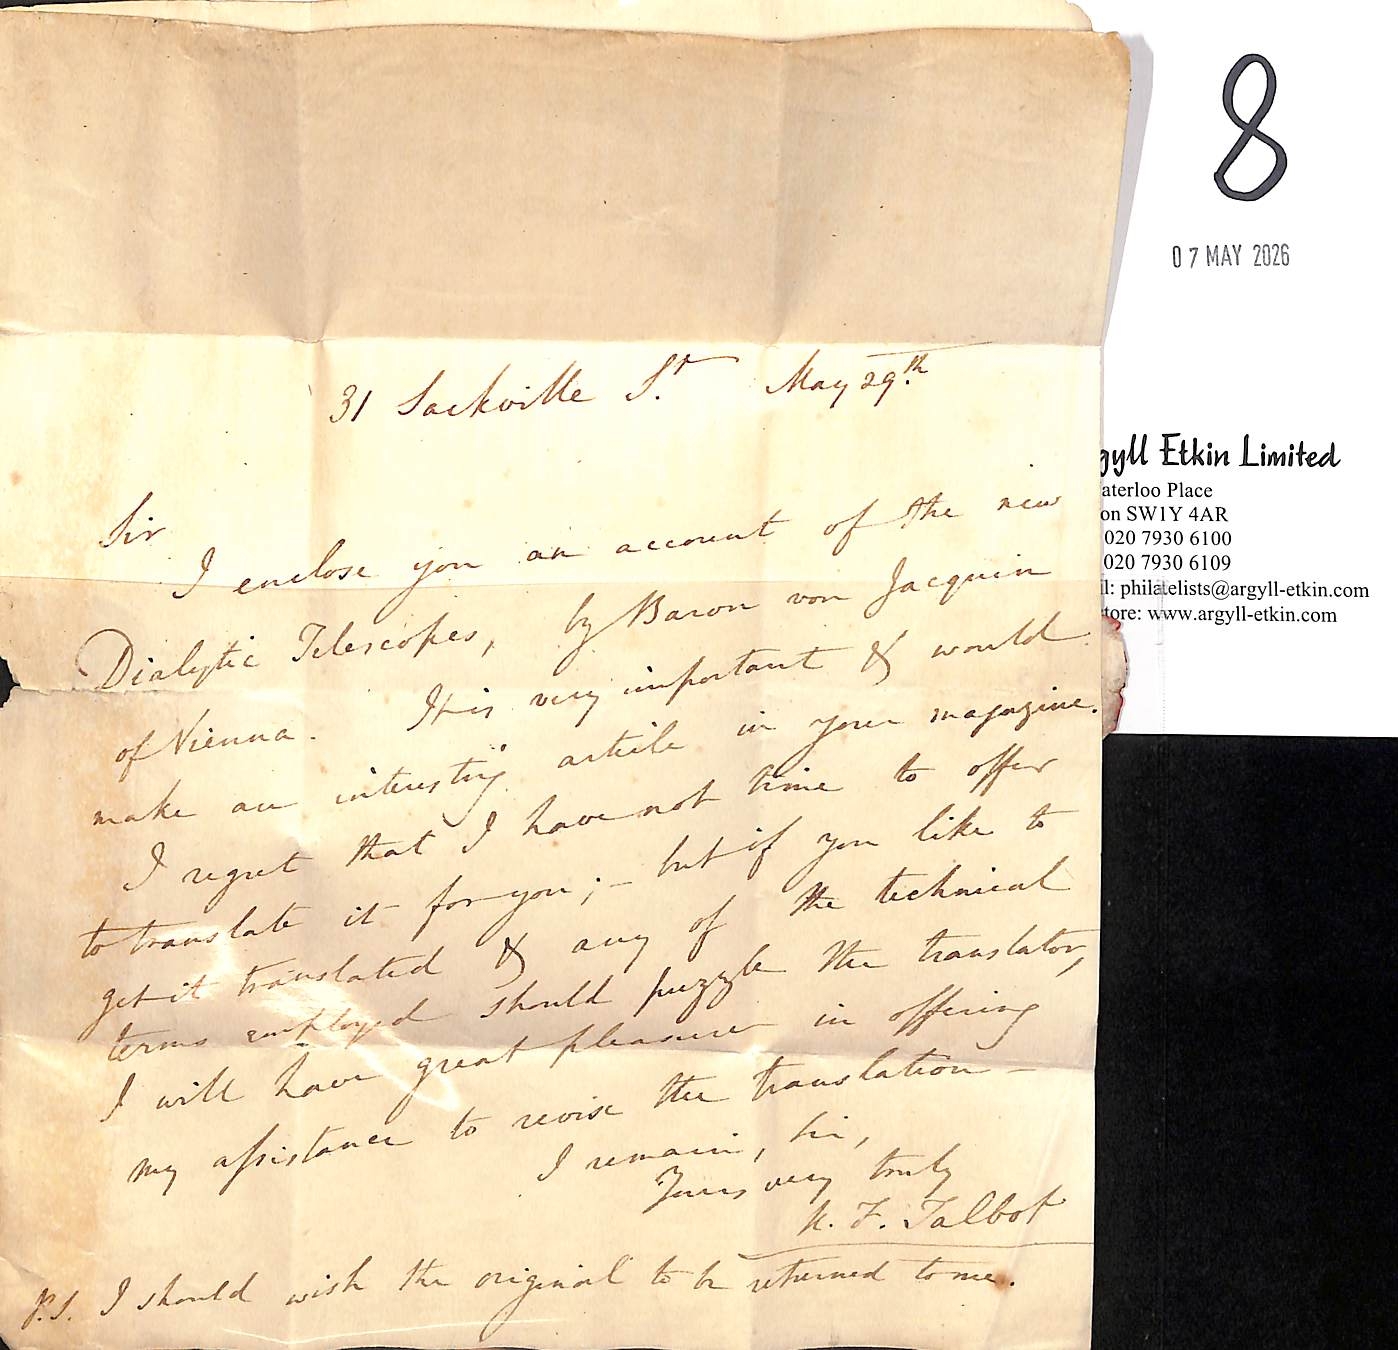 8
07 MAY 2026
gyll Etkin Limited
aterloo Place
on SW1Y 4AR
020 7930 6100
020 7930 6109
il: philatelists@argyll-etkin.com
tore: www.argyll-etkin.com
31 Sackville St. May 29th.
Sir
I enclose you an account of the new
Dialytic Telescopes, by Baron von Jacquin
of Vienna. It is very important & would
make an interesting article in your magazine.
I regret that I have not time to offer
to translate it for you; – but if you like to
get it translated & any of the technical
terms employed should puzzle the translator,
I will have great pleasure in offering
my assistance to revise the translation –
I remain, Sir,
Yours very truly
H. F. Talbot
P.S. I should wish the original to be returned to me.